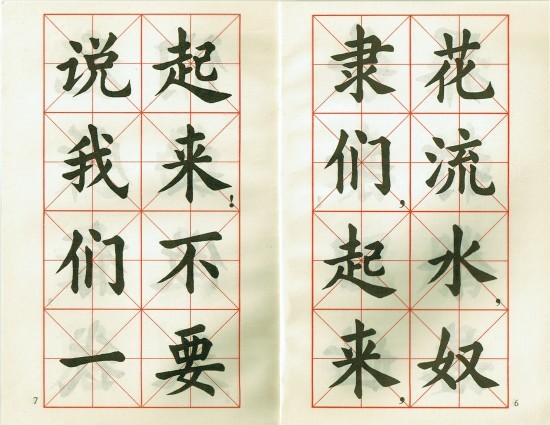 花流水，奴
隶们，起来，
6
起来！不要
说我们一
7